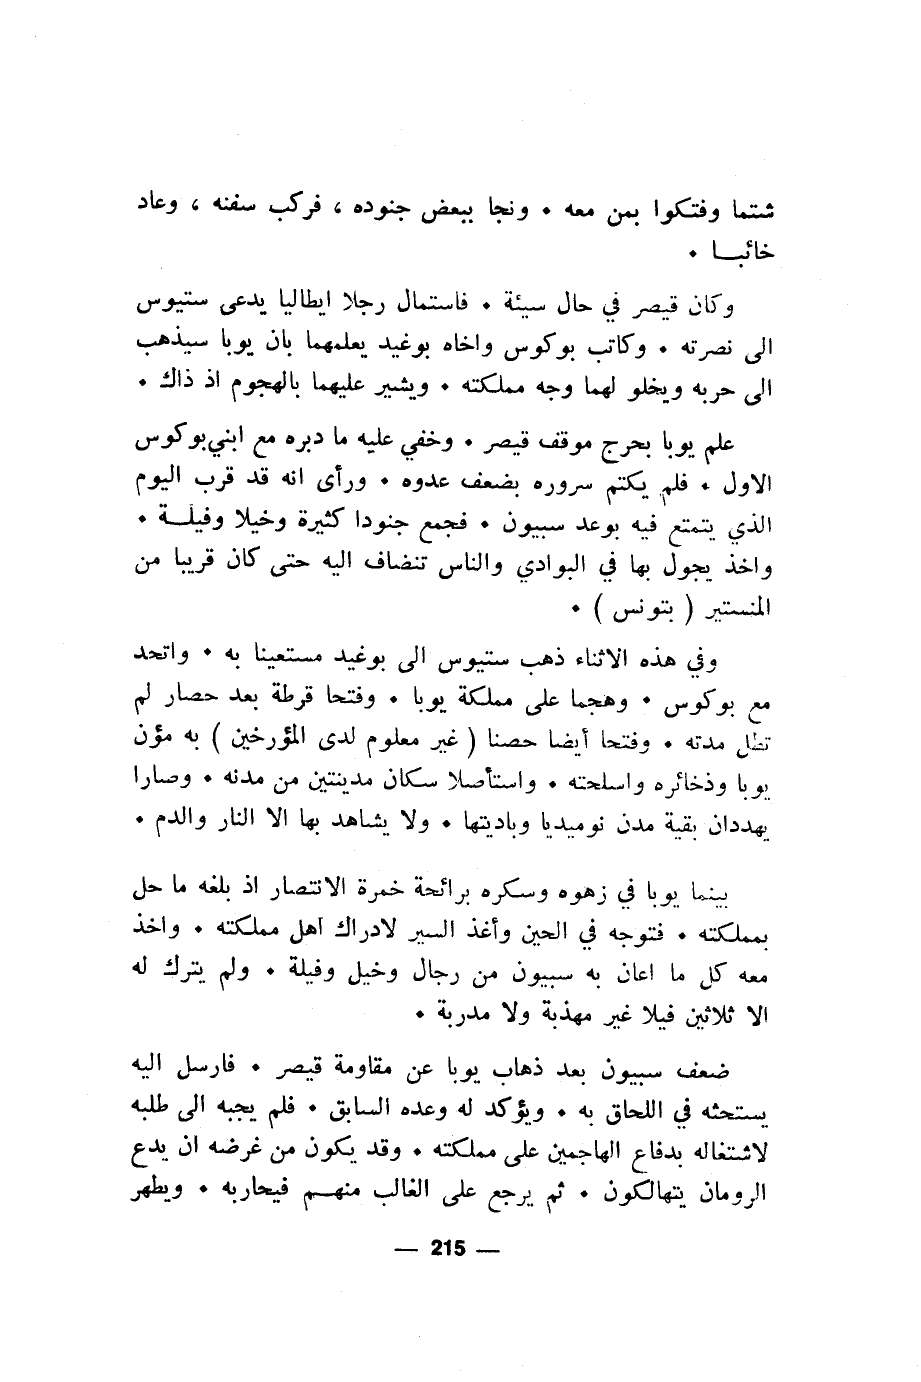 شتما وفتكوا بمن معه • ونجا ببعض جنوده ، فركب سفنه ، وعاد
خائبـــا •
وكان قيصر في حال سيئة • فاستمال رجلا ايطاليا يدعى ستيوس
الى نصرته • وكاتب بوكوس واخاه بوغيد يعلمهما بان يوبا سيذهب
الى حربه ويخلو لهما وجه مملكته • ويشير عليهما بالهجوم اذ ذاك •
علم يوبا بحرج موقف قيصر • وخفي عليه ما دبره مع ابني بوكوس
الاول • فلم يكتم سروره بضعف عدوه • ورأى انه قد قرب اليوم
الذي يتمتع فيه بوعد سبيون • فجمع جنودا كثيرة وخيلا وفيلـــة •
واخذ يجول بها في البوادي والناس تنضاف اليه حتى كان قريبا من
المنستير ( بتونس ) •
وفي هذه الاثناء ذهب ستيوس الى بوغيد مستعينا به • واتحد
مع بوكوس • وهجما على مملكة يوبا • وفتحا قرطة بعد حصار لم
تطل مدته • وفتحا أيضا حصنا ( غير معلوم لدى المؤرخين ) به مؤن
يوبا وذخائره واسلحته • واستأصلا سكان مدينتين من مدنه • وصارا
يهددان بقية مدن نوميديا وباديتها • ولا يشاهد بها الا النار والدم •
بينما يوبا في زهوه وسكره برائحة خمرة الانتصار اذ بلغه ما حل
بمملكته • فتوجه في الحين وأغذ السير لادراك اهل مملكته • واخذ
معه كل ما اعان به سبيون من رجال وخيل وفيلة • ولم يترك له
الا ثلاثين فيلا غير مهذبة ولا مدربة •
ضعف سبيون بعد ذهاب يوبا عن مقاومة قيصر • فارسل اليه
يستحثه في اللحاق به • ويؤكد له وعده السابق • فلم يجبه الى طلبه
لاشتغاله بدفاع الهاجمين على مملكته • وقد يكون من غرضه ان يدع
الرومان يتهالكون • ثم يرجع على الغالب منهـــم فيحاربه • ويطهر
— 215 —